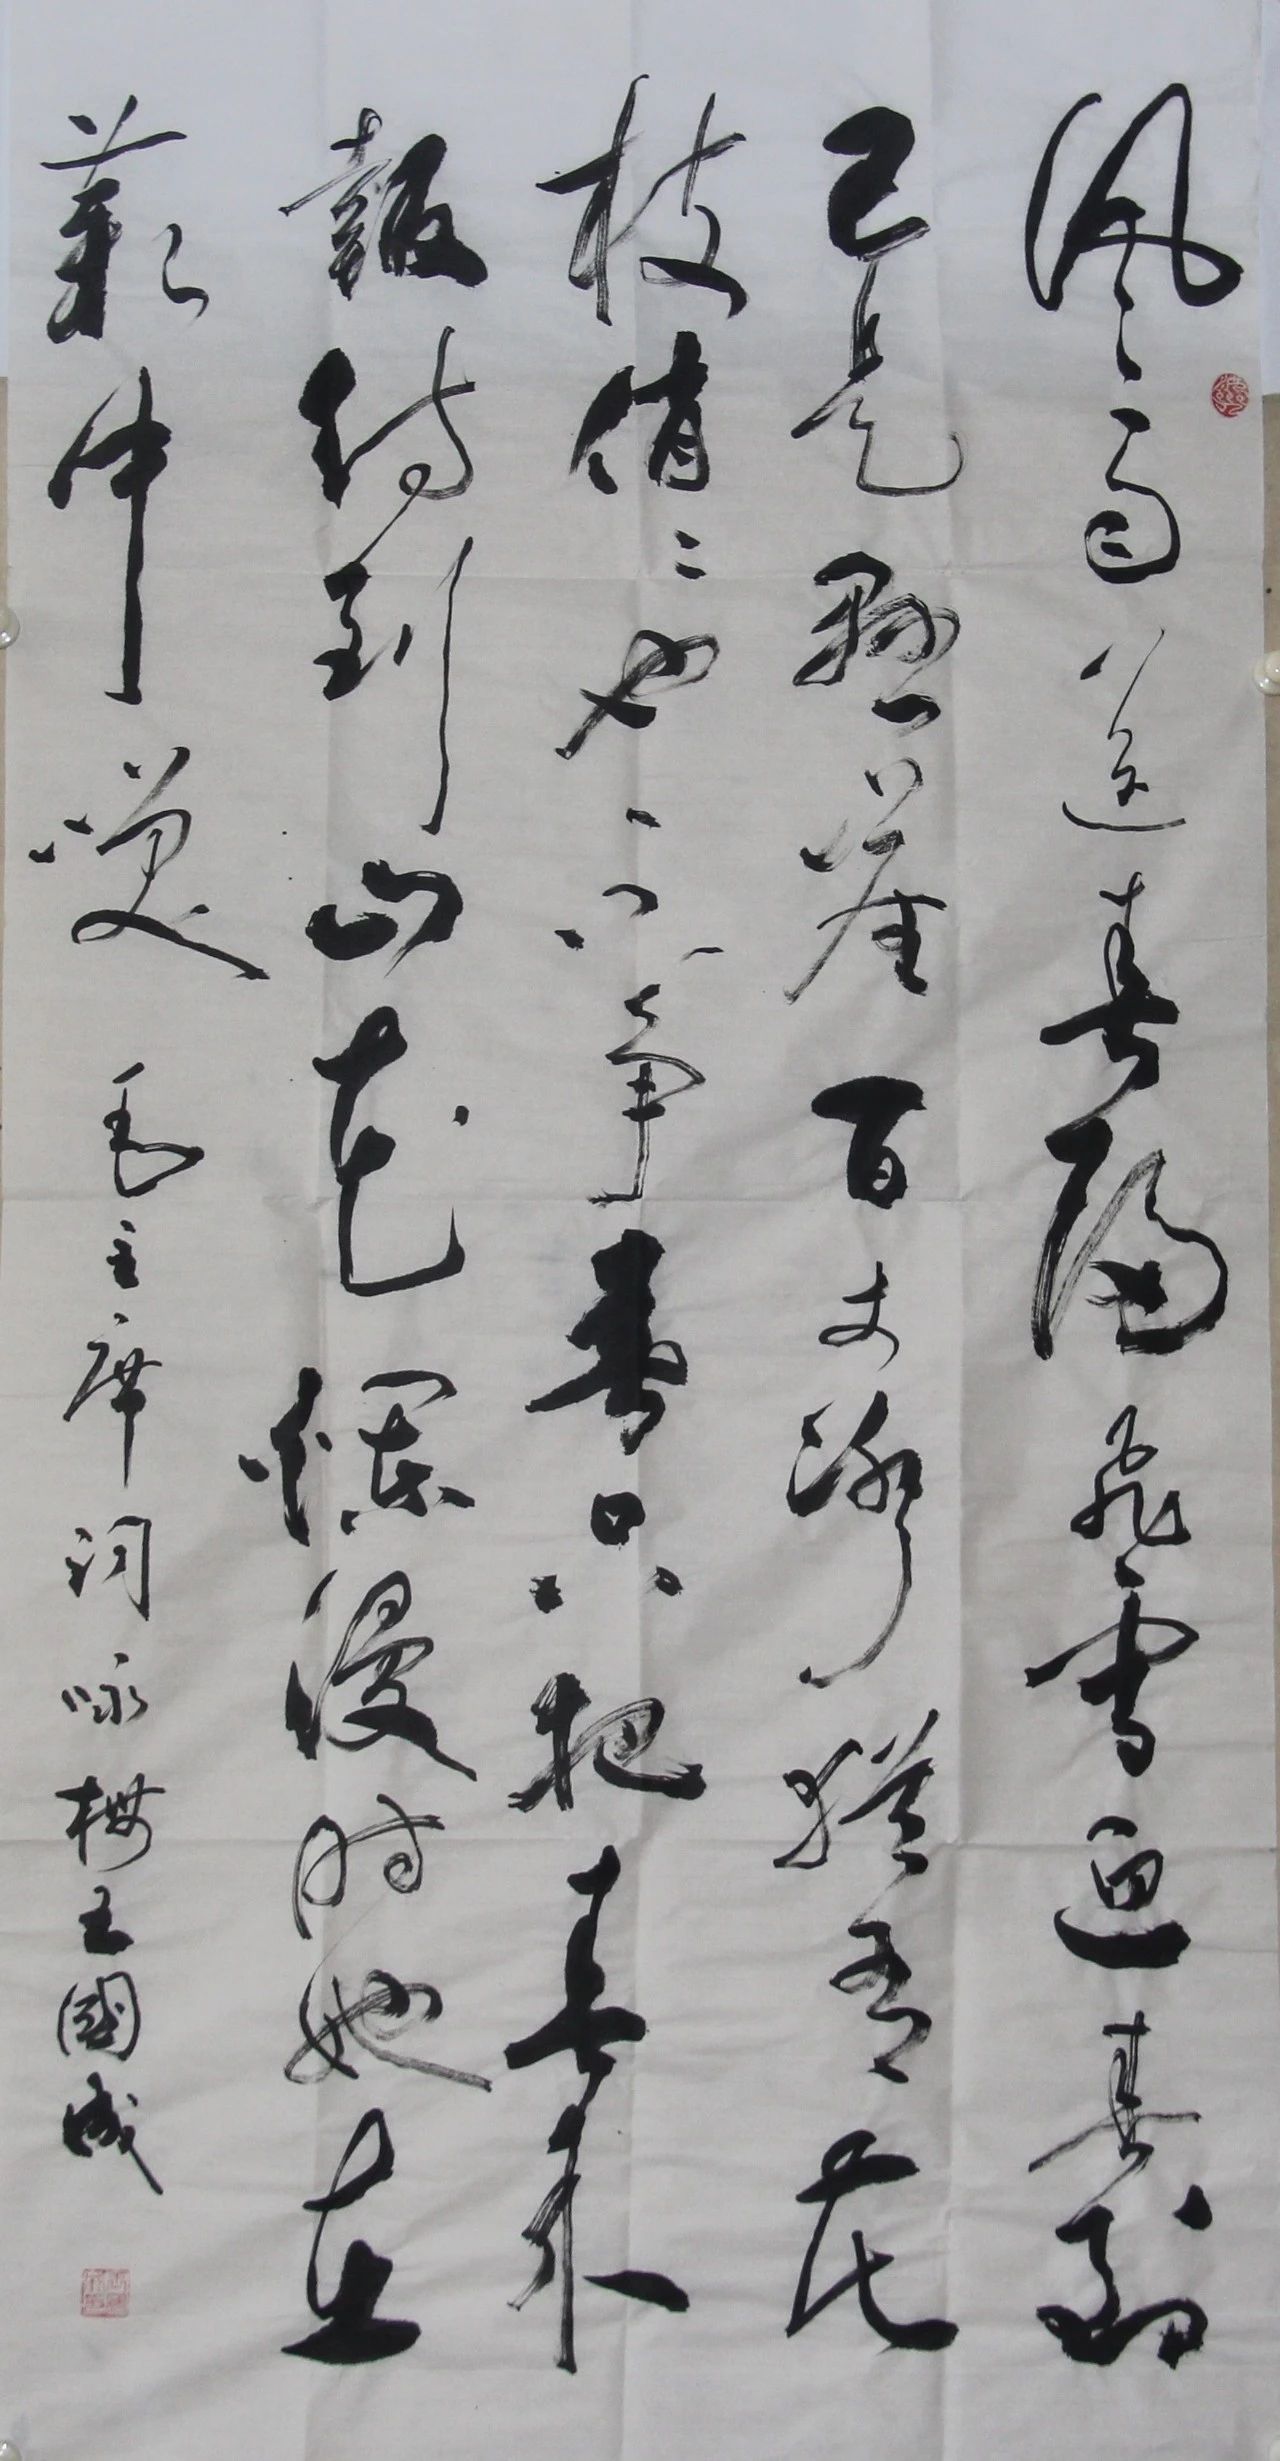 風雨送春歸飛雪迎春到
已是懸崖百丈冰猶有花
枝俏〻也不争春只把春来
報待到山花爛漫时她在
叢中咲 毛主席词咏梅王國成